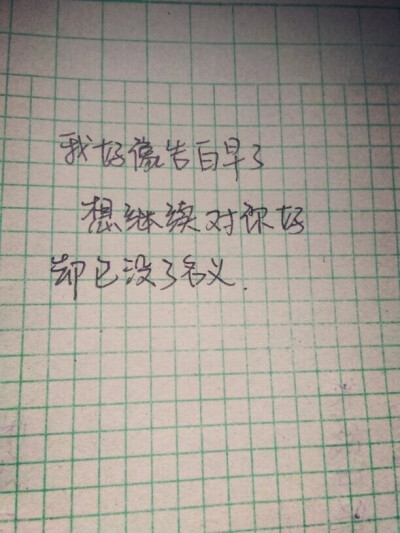 我好像告白早了
想继续对你好
却已没了名义.